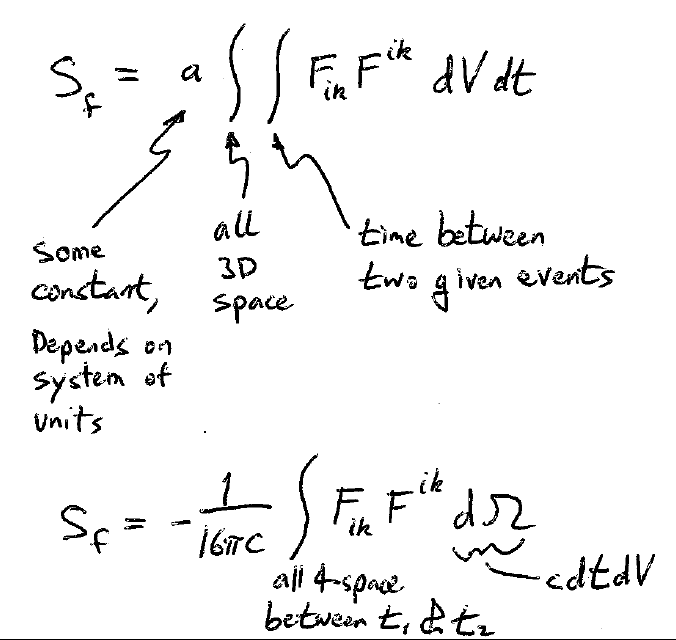 S_f = a ∫ ∫ F_ik F^ik dV dt
some constant, Depends on system of units
all 3D space
time between two given events
S_f = - 1/16πc ∫ F_ik F^ik dΩ
cdtdV
all 4-space
between t₁ & t₂